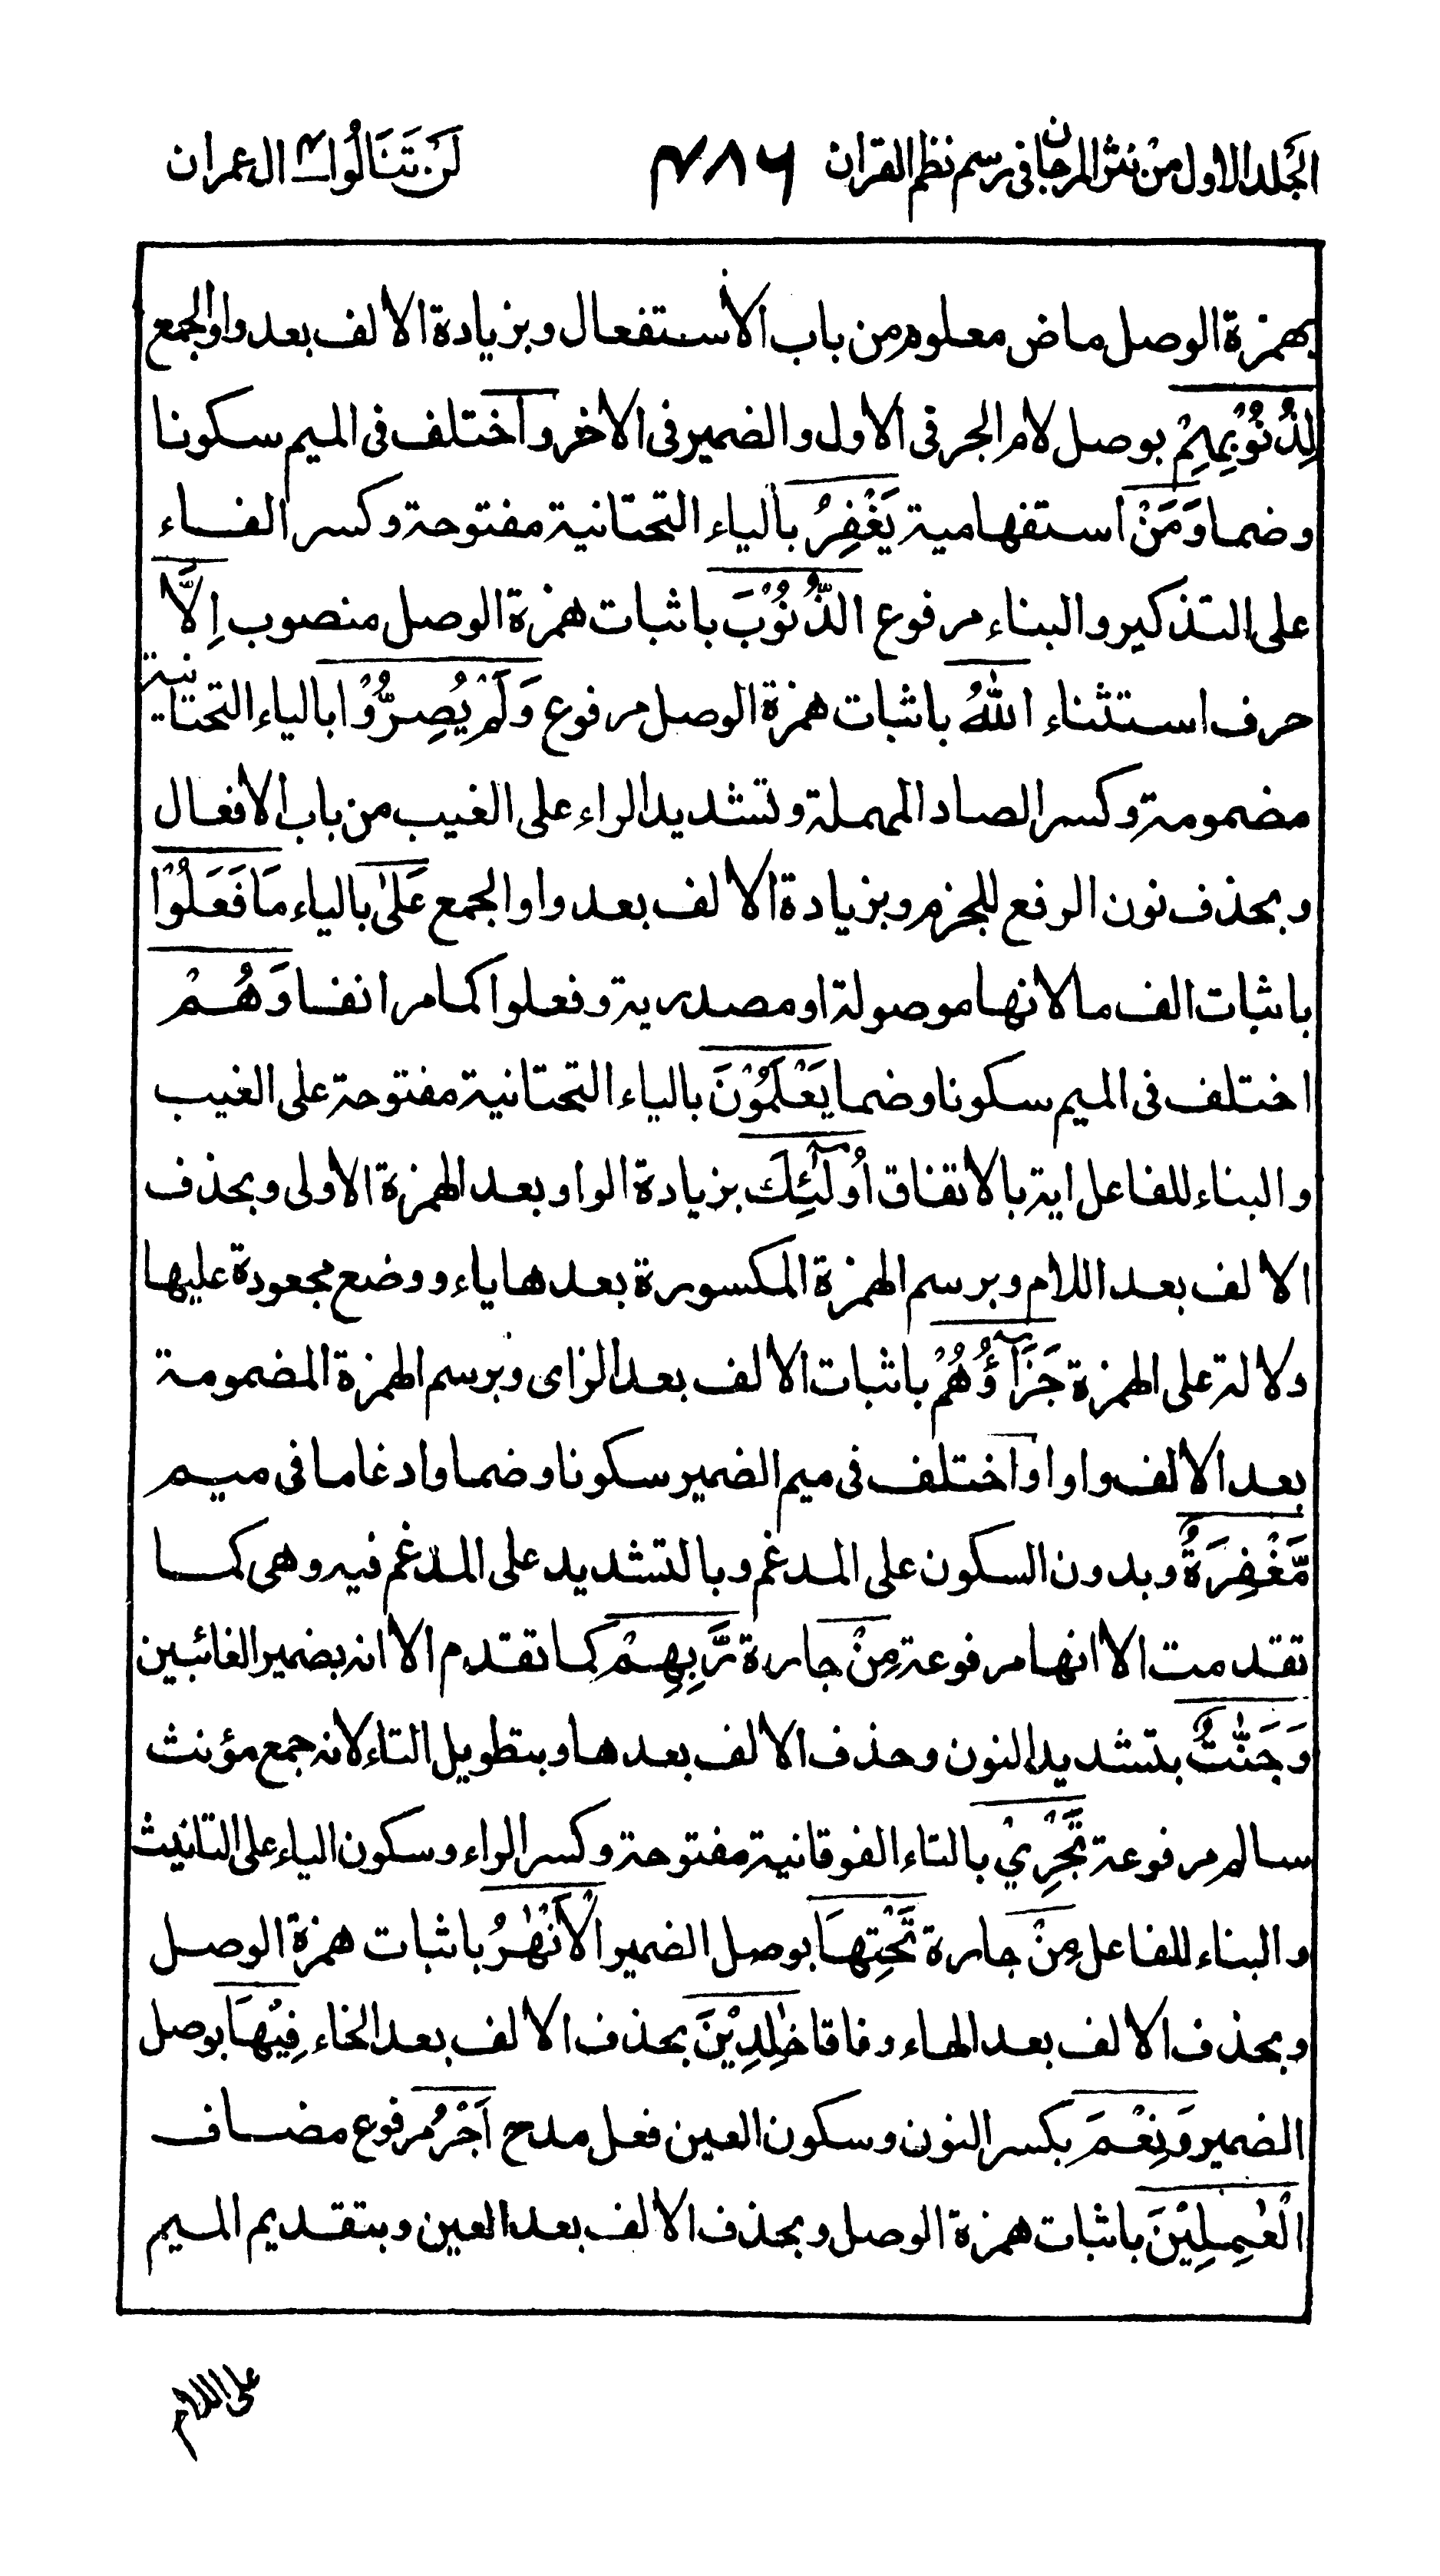 الجلد الاول من نثر المرجان فى رسم نظم القران ٤٨٦ لَنْ تَنَالُوا ٤ ال عمران
بهمزة الوصل ماض معلوم من باب الاستفعال وبزيادة الالف بعد واو الجمع
لِذُنُوْبِهِمْ بوصل لام الجر فى الاول والضمير فى الاخر واختلف فى الميم سكونا
وضما وَمَنْ استفهامية يَغْفِرُ بالياء التحتانية مفتوحة وكسر الفاء
على التذكير والبناء مرفوع الذُّنُوْبَ باثبات همزة الوصل منصوب اِلَّا
حرف استثناء اللّٰهُ باثبات همزة الوصل مرفوع وَلَمْ يُصِرُّوْا بالياء التحتانية
مضمومة وكسر الصاد المهملة وتشديد الراء على الغيب من باب الافعال
وبحذف نون الرفع للجزم وبزيادة الالف بعد واو الجمع عَلٰى بالياء مَا فَعَلُوْا
باثبات الف ما لانها موصولة او مصدرية وفعلوا كما مر انفا وَهُمْ
اختلف فى الميم سكونا وضما يَعْلَمُوْنَ بالياء التحتانية مفتوحة على الغيب
والبناء للفاعل اية بالاتفاق اُولٰٓئِكَ بزيادة الواو بعد الهمزة الاولى وبحذف
الالف بعد اللام وبرسم الهمزة المكسورة بعدها ياء ووضع مجعودة عليها
دلالة على الهمزة جَزَآؤُهُمْ باثبات الالف بعد الزاى وبرسم الهمزة المضمومة
بعد الالف واوا واختلف فى ميم الضمير سكونا وضما وادغاما فى ميم
مَّغْفِرَةٌ وبدون السكون على المدغم وبالتشديد على المدغم فيه وهى كما
تقدمت الا انها مرفوعة مِنْ جارة رَّبِهِمْ كما تقدم الا انه بضمير الغائبين
وَجَنّٰتٌ بتشديد النون وحذف الالف بعدها وبتطويل التاء لانه جمع مؤنث
سالم مرفوعة تَجْرِيْ بالتاء الفوقانية مفتوحة وكسر الراء وسكون الياء على التانيث
والبناء للفاعل مِنْ جارة تَحْتِهَا بوصل الضمير الْاَنْهٰرُ باثبات همزة الوصل
وبحذف الالف بعد الهاء وفاقا خٰلِدِيْنَ بحذف الالف بعد الخاء فِيْهَا بوصل
الضمير وَنِعْمَ بكسر النون وسكون العين فعل مدح اَجْرُ مرفوع مضاف
الْعٰمِلِيْنَ باثبات همزة الوصل وبحذف الالف بعد العين وبتقديم الميم
على اللام